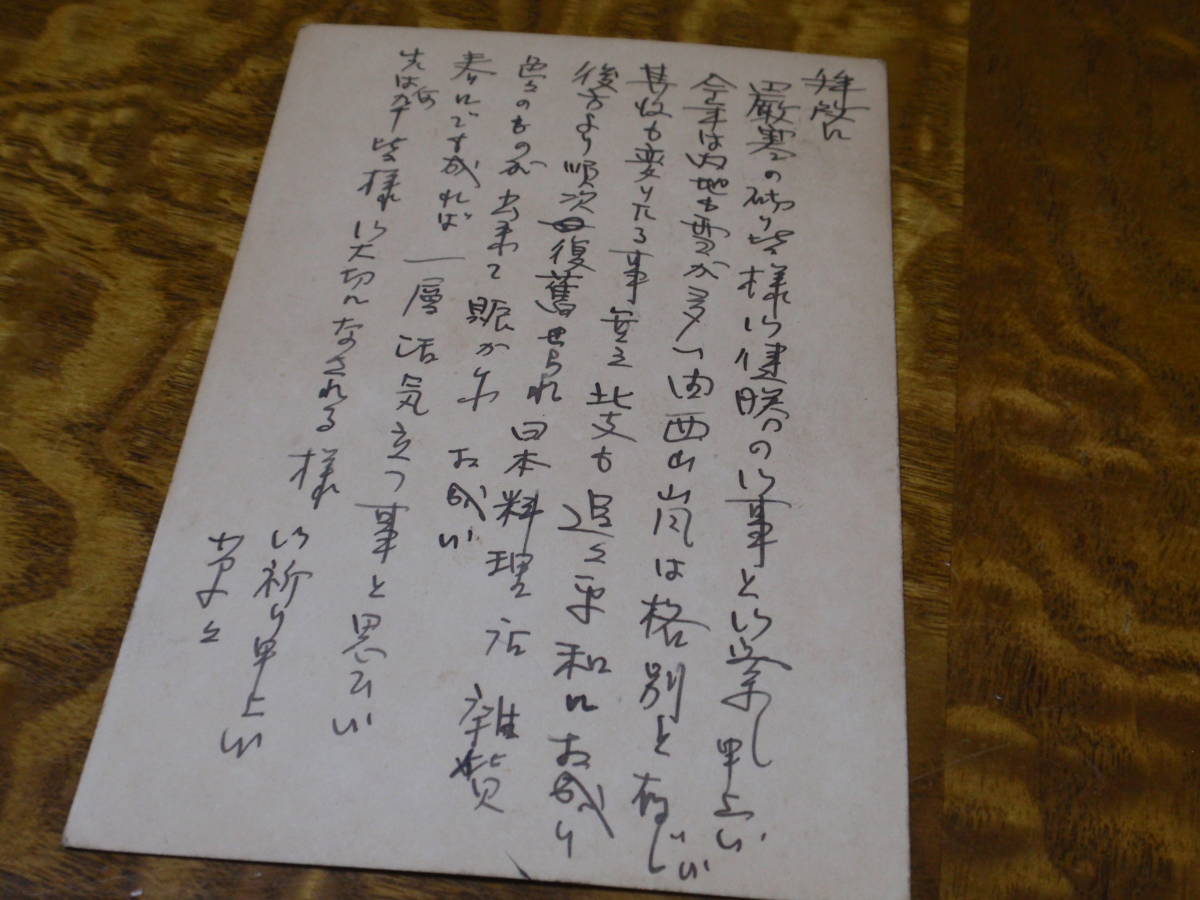 拝啓
厳寒の砌り皆様御健勝の御事と御察し申上候
今年は内地も雪が多い由西山嵐は格別と存じ候
其後も変りたる事無之北支も追々平和に相成り
後方より順次復舊せられ日本料理店雑貨
色々のものが出来て賑かに相成候
春にでも成れば一層活気立つ事と思ひ候
先は皆様御大切になされる様
御祈り申上候
草々